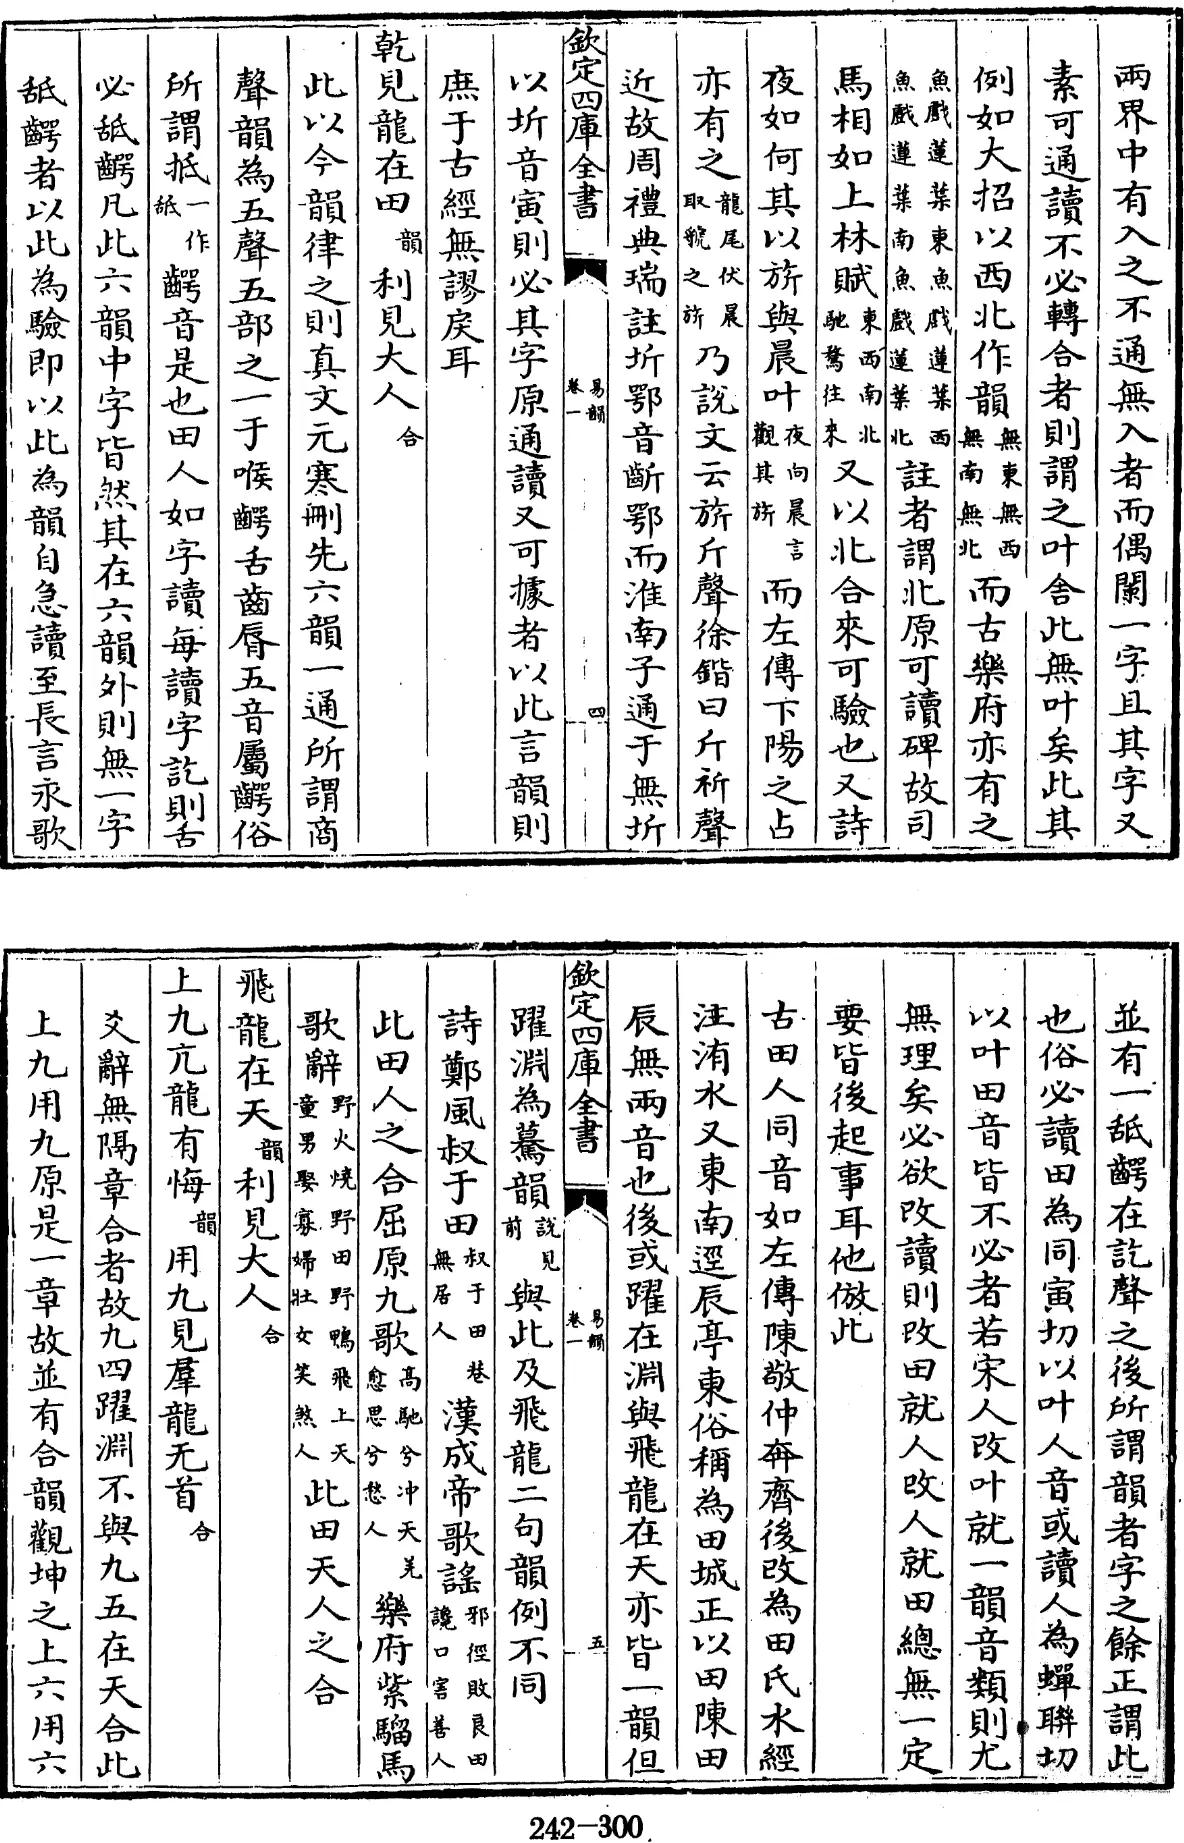 兩界中有入之不通無入者而偶闌一字且其字又
素可通讀不必轉合者則謂之叶舍此無叶矣此其
例如大招以西北作韻無東無西無南無北而古樂府亦有之
魚戲蓮葉東魚戲蓮葉西魚戲蓮葉南魚戲蓮葉北註者謂北原可讀碑故司
馬相如上林賦東西南北馳騖往來又以北合來可驗也又詩
夜如何其以旂與晨叶夜向晨言觀其旂而左傳下陽之占
亦有之龍尾伏晨取虢之旂乃說文云旂斤聲徐鍇曰斤祈聲
近故周禮典瑞註圻鄂音齗鄂而淮南子通于無圻
欽定四庫全書
易韻
卷一
四
以圻音寅則必其字原通讀又可據者以此言韻則
庶于古經無謬戾耳
乾見龍在田韻利見大人合
此以今韻律之則真文元寒刪先六韻一通所謂商
聲韻為五聲五部之一于喉齶舌齒脣五音屬齶俗
所謂抵一作舐齶音是也田人如字讀每讀字訖則舌
必舐齶凡此六韻中字皆然其在六韻外則無一字
舐齶者以此為驗即以此為韻自急讀至長言永歌
並有一舐齶在訖聲之後所謂韻者字之餘正謂此
也俗必讀田為同寅切以叶人音或讀人為蟬聯切
以叶田音皆不必者若宋人改叶就一韻音類則尤
無理矣必欲改讀則改田就人改人就田總無一定
要皆後起事耳他倣此
古田人同音如左傳陳敬仲奔齊後改為田氏水經
注洧水又東南逕辰亭東俗稱為田城正以田陳田
辰無兩音也後或躍在淵與飛龍在天亦皆一韻但
欽定四庫全書
易韻
卷一
五
躍淵為驀韻說見前與此及飛龍二句韻例不同
詩鄭風叔于田叔于田巷無居人漢成帝歌謠邪徑敗良田讒口害善人
此田人之合屈原九歌高馳兮冲天羌愈思兮愁人樂府紫騮馬
歌辭野火燒野田野鴨飛上天童男娶寡婦壯女笑煞人此田天人之合
飛龍在天韻利見大人合
上九亢龍有悔韻用九見羣龍无首合
爻辭無隔章合者故九四躍淵不與九五在天合此
上九用九原是一章故並有合韻觀坤之上六用六
242-300